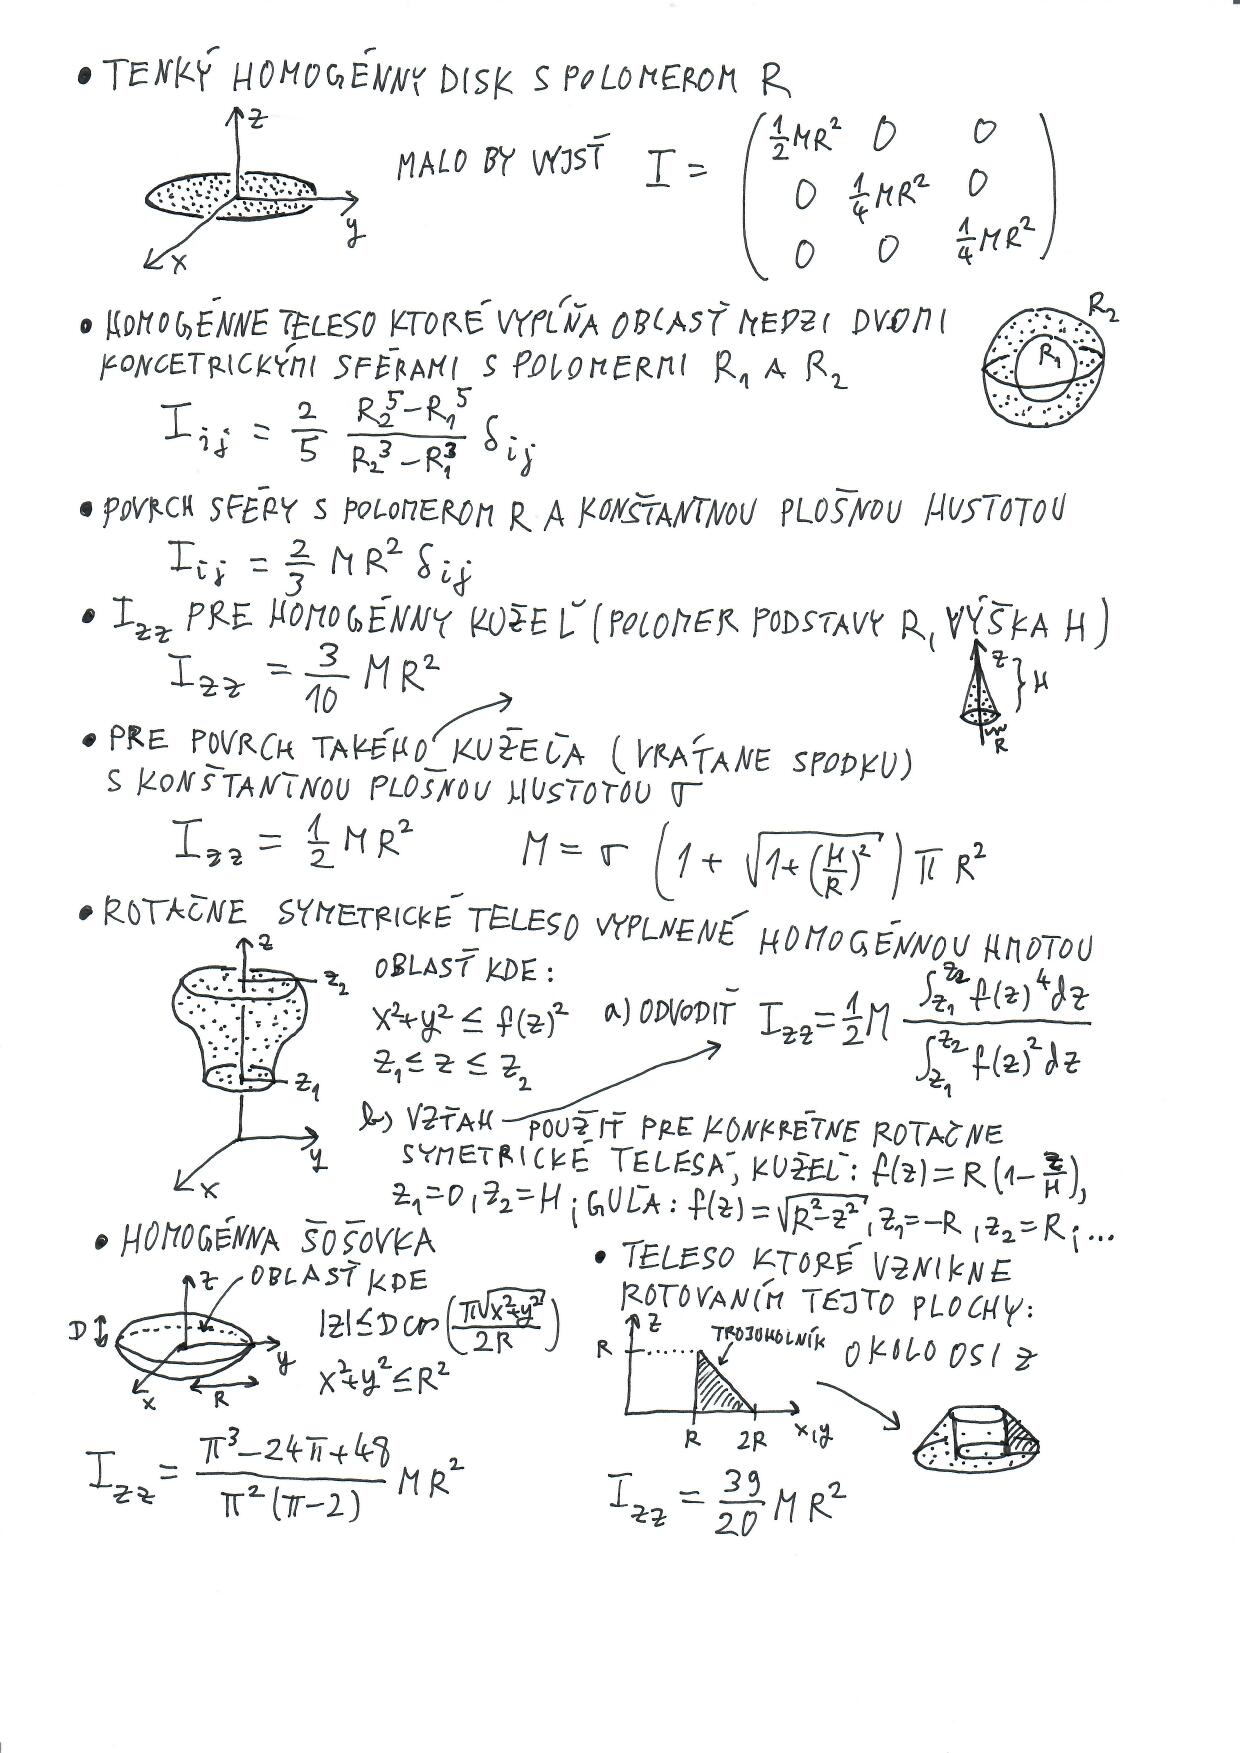 • TENKÝ HOMOGÉNNY DISK S POLOMEROM R
z
y
x
MALO BY VYJSŤ I = ( ½MR² 0 0
0 ¼MR² 0
0 0 ¼MR² )
• HOMOGÉNNE TELESO KTORÉ VYPĹŇA OBLASŤ MEDZI DVOMI
KONCETRICKÝMI SFÉRAMI S POLOMERMI R₁ A R₂
R₂
R₁
I_ij = 2/5 (R₂⁵-R₁⁵)/(R₂³-R₁³) δ_ij
• POVRCH SFÉRY S POLOMEROM R A KONŠTANTNOU PLOŠNOU HUSTOTOU
I_ij = 2/3 MR² δ_ij
• I_zz PRE HOMOGÉNNY KUŽEĽ (POLOMER PODSTAVY R, VÝŠKA H)
I_zz = 3/10 MR²
z
H
R
• PRE POVRCH TAKÉHO KUŽEĽA (VRÁTANE SPODKU)
S KONŠTANTNOU PLOŠNOU HUSTOTOU σ
I_zz = ½ MR² M = σ (1 + √(1+(H/R)²)) π R²
• ROTAČNE SYMETRICKÉ TELESO VYPLNENÉ HOMOGÉNNOU HMOTOU
z
z₂
z₁
y
x
OBLASŤ KDE:
x²+y² ≤ f(z)²
z₁ ≤ z ≤ z₂
a) ODVODIŤ I_zz = ½ M ∫_z₁^z₂ f(z)⁴dz / ∫_z₁^z₂ f(z)²dz
b) VZŤAH POUŽIŤ PRE KONKRÉTNE ROTAČNE
SYMETRICKÉ TELESÁ, KUŽEĽ: f(z)=R(1-z/H),
z₁=0, z₂=H; GUĽA: f(z)=√(R²-z²), z₁=-R, z₂=R; ...
• HOMOGÉNNA ŠOŠOVKA
z OBLASŤ KDE
D
y
x
R
|z| ≤ D cos(π√(x²+y²)/2R)
x²+y² ≤ R²
I_zz = (π³-24π+48)/(π²(π-2)) MR²
• TELESO KTORÉ VZNIKNE
ROTOVANÍM TEJTO PLOCHY:
z
TROJUHOLNÍK
R
OKOLO OSI z
R 2R x,y
I_zz = 39/20 MR²